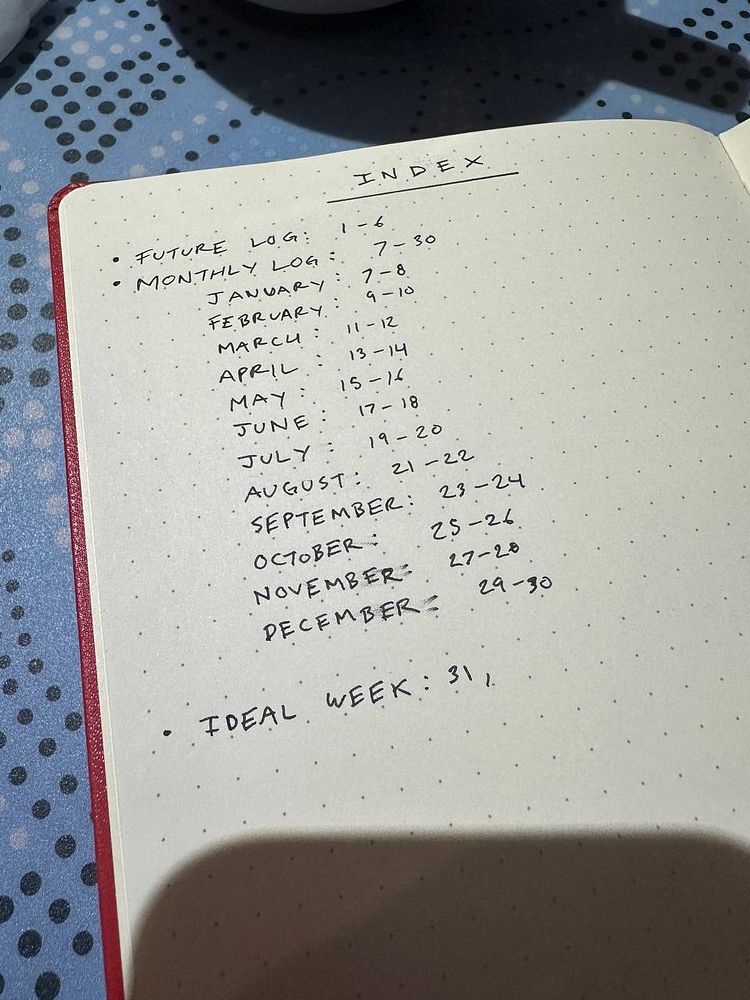 INDEX
• FUTURE LOG: 1-6
• MONTHLY LOG: 7-30
JANUARY: 7-8
FEBRUARY: 9-10
MARCH: 11-12
APRIL: 13-14
MAY: 15-16
JUNE: 17-18
JULY: 19-20
AUGUST: 21-22
SEPTEMBER: 23-24
OCTOBER: 25-26
NOVEMBER: 27-28
DECEMBER: 29-30
• IDEAL WEEK: 31,